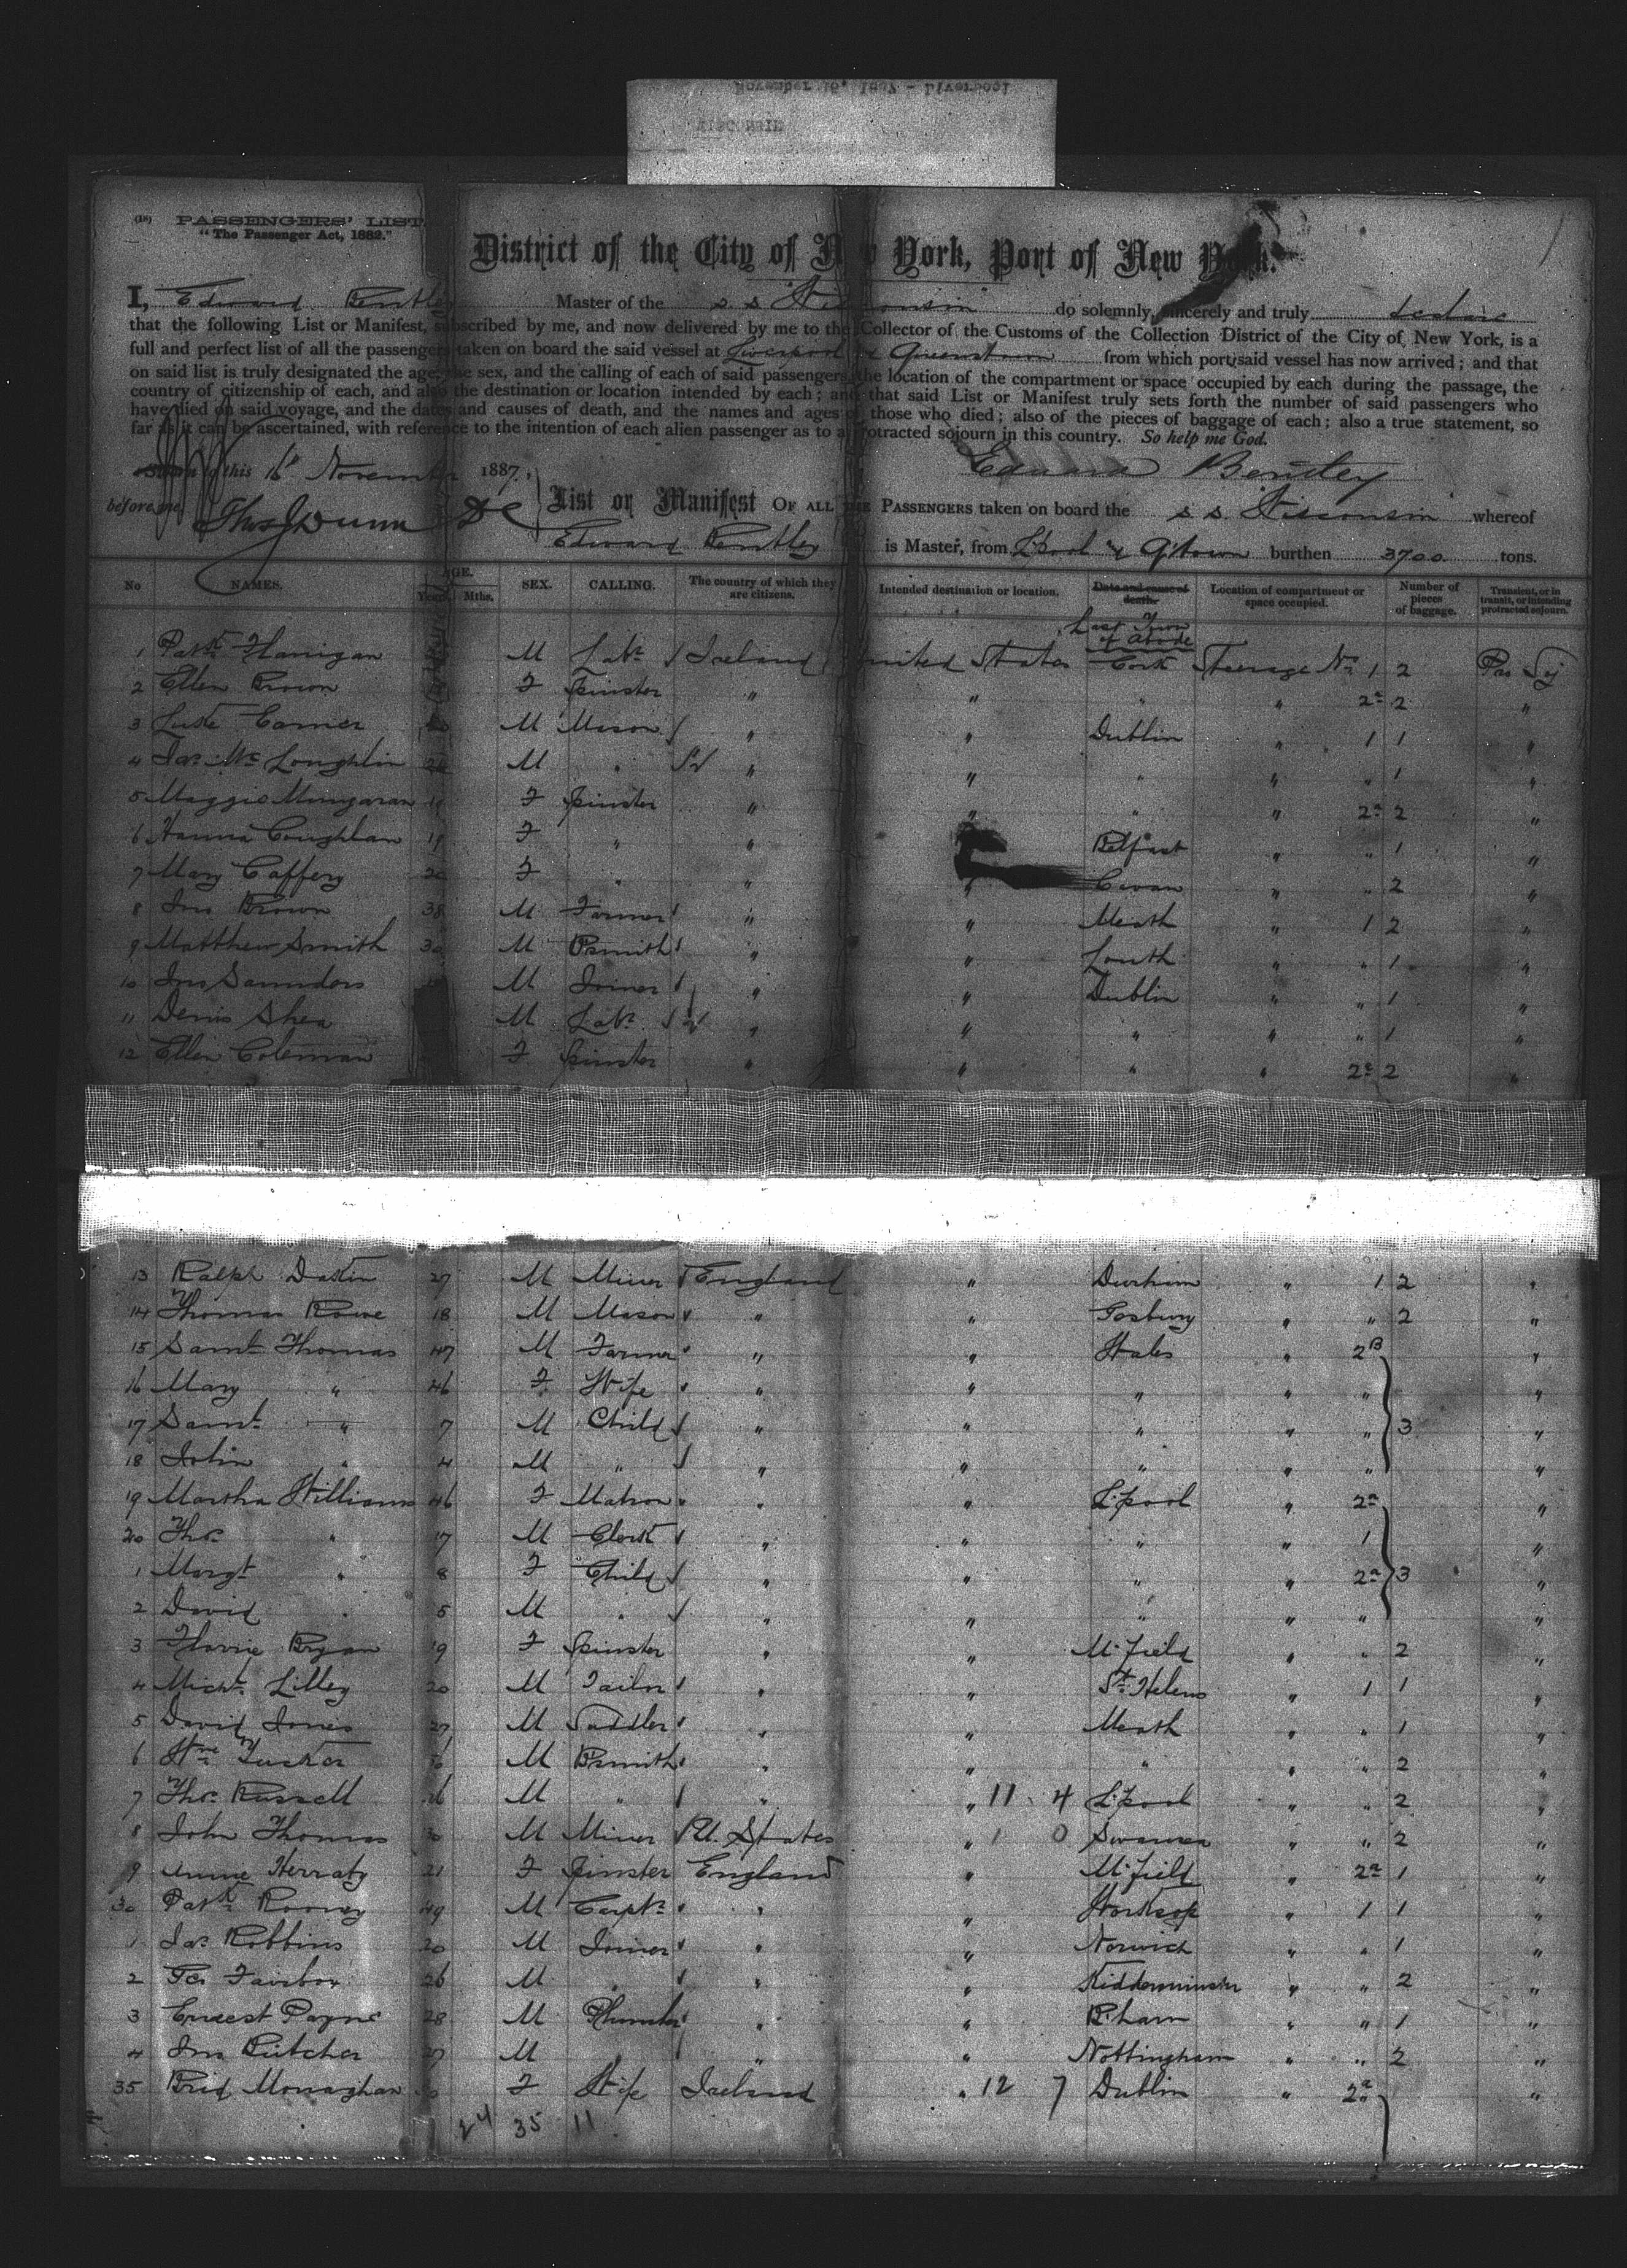 November 16, 1887 - Liverpool
WISCONSIN
(18) PASSENGERS' LIST.
"The Passenger Act, 1882."
District of the City of New York, Port of New York.
I, Edward Bentley Master of the s.s. "Wisconsin" do solemnly, sincerely and truly declare
that the following List or Manifest, subscribed by me, and now delivered by me to the Collector of the Customs of the Collection District of the City of New York, is a
full and perfect list of all the passengers taken on board the said vessel at Liverpool & Queenstown from which port said vessel has now arrived; and that
on said list is truly designated the age, the sex, and the calling of each of said passengers, the location of the compartment or space occupied by each during the passage, the
country of citizenship of each, and also the destination or location intended by each; and that said List or Manifest truly sets forth the number of said passengers who
have died on said voyage, and the dates and causes of death, and the names and ages of those who died; also of the pieces of baggage of each; also a true statement, so
far as it can be ascertained, with reference to the intention of each alien passenger as to a protracted sojourn in this country. So help me God.
Sworn to this 16 November 1887. Edward Bentley
before me Thos J Dunn DC List or Manifest OF ALL THE PASSENGERS taken on board the s.s. Wisconsin whereof
Edward Bentley is Master, from L'pool & Q'town burthen 3700 tons.
No NAMES. AGE. Years Mths. SEX. CALLING. The country of which they are citizens. Intended destination or location. Date and cause of death. Last Town of Abode Location of compartment or space occupied. Number of pieces of baggage. Transient, or in transit, or intending protracted sojourn.
1 Patk Flanigan M Labr Ireland United States Cork Steerage No 1 2 Pro Soj
2 Ellen Brown F Spinster " " " " 2a 2 "
3 Luke M Mason " " Dublin " 1 1 "
4 Jas McLoughlin 24 M " " " " " " 1 "
5 Maggie F Spinster " " " " 2a 2 "
6 Hanna Coughlan 19 F " " Belfast " " 1 "
7 Mary Caffery 20 F " " " Cavan " " 2 "
8 Jno Brown 38 M Farmer " " Meath " 1 2 "
9 Matthew Smith 30 M Bsmith " " Louth " " 1 "
10 Jno Saunders M Joiner " " Dublin " " 1 "
11 Denis Shea M Labr " " " " " 1 "
12 Ellen Coleman F Spinster " " " " 2a 2 "
13 Ralph Dakin 27 M Miner England " Durham " 1 2 "
14 Thomas Rowe 18 M Mason " " " " 2 "
15 Saml Thomas 47 M Farmer " " Wales " 2B "
16 Mary " 46 F Wife " " " " " "
17 Saml " 7 M Child " " " " " 3 "
18 John " 4 M " " " " " " "
19 Martha Williams 46 F Matron " " L'pool " 2a "
20 Thos " 17 M Clerk " " " " 1 "
1 Margt " 8 F Child " " " " 2a 3 "
2 David " 5 M " " " " " " "
3 Florrie Ryan 19 F Spinster " " M'field " " 2 "
4 Michl Lilley 20 M Tailor " " St Helens " 1 1 "
5 David Jones 27 M Saddler " " Meath " " 1 "
6 Wm Tucker M Bsmith " " " " " 2 "
7 Thos Russell M " " " 11 4 L'pool " " 2 "
8 John Thomas M Miner U. States " 1 0 Swansea " " 2 "
9 Annie Herraty 21 F Spinster England " M'field " 2a 1 "
30 Patk Rooney 49 M Carptr " " Worksop " 1 1 "
1 Jas Robbins 20 M Joiner " " Norwich " " 1 "
2 26 M " " " Kidderminster " " 2 "
3 Ernest Payne 28 M Plumber " " B'ham " " 1 "
4 Jno Butcher 27 M " " " Nottingham " " 2 "
35 Brid Monaghan F Wife Ireland " 12 7 Dublin " 2a "
24 35 11